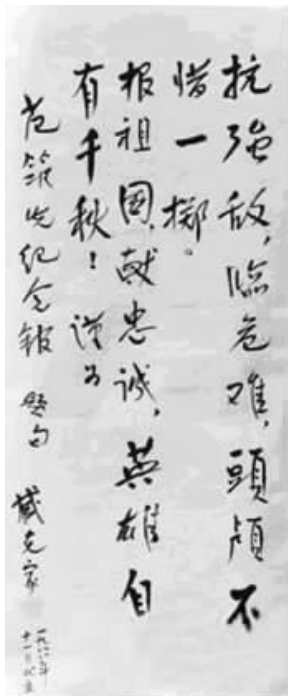 抗强敌，临危难，頭顱不
惜一掷。
报祖国，献忠诚，英雄自
有千秋！谨为
范筑先纪念馆 题句 臧克家
一九八八年
十一月北京